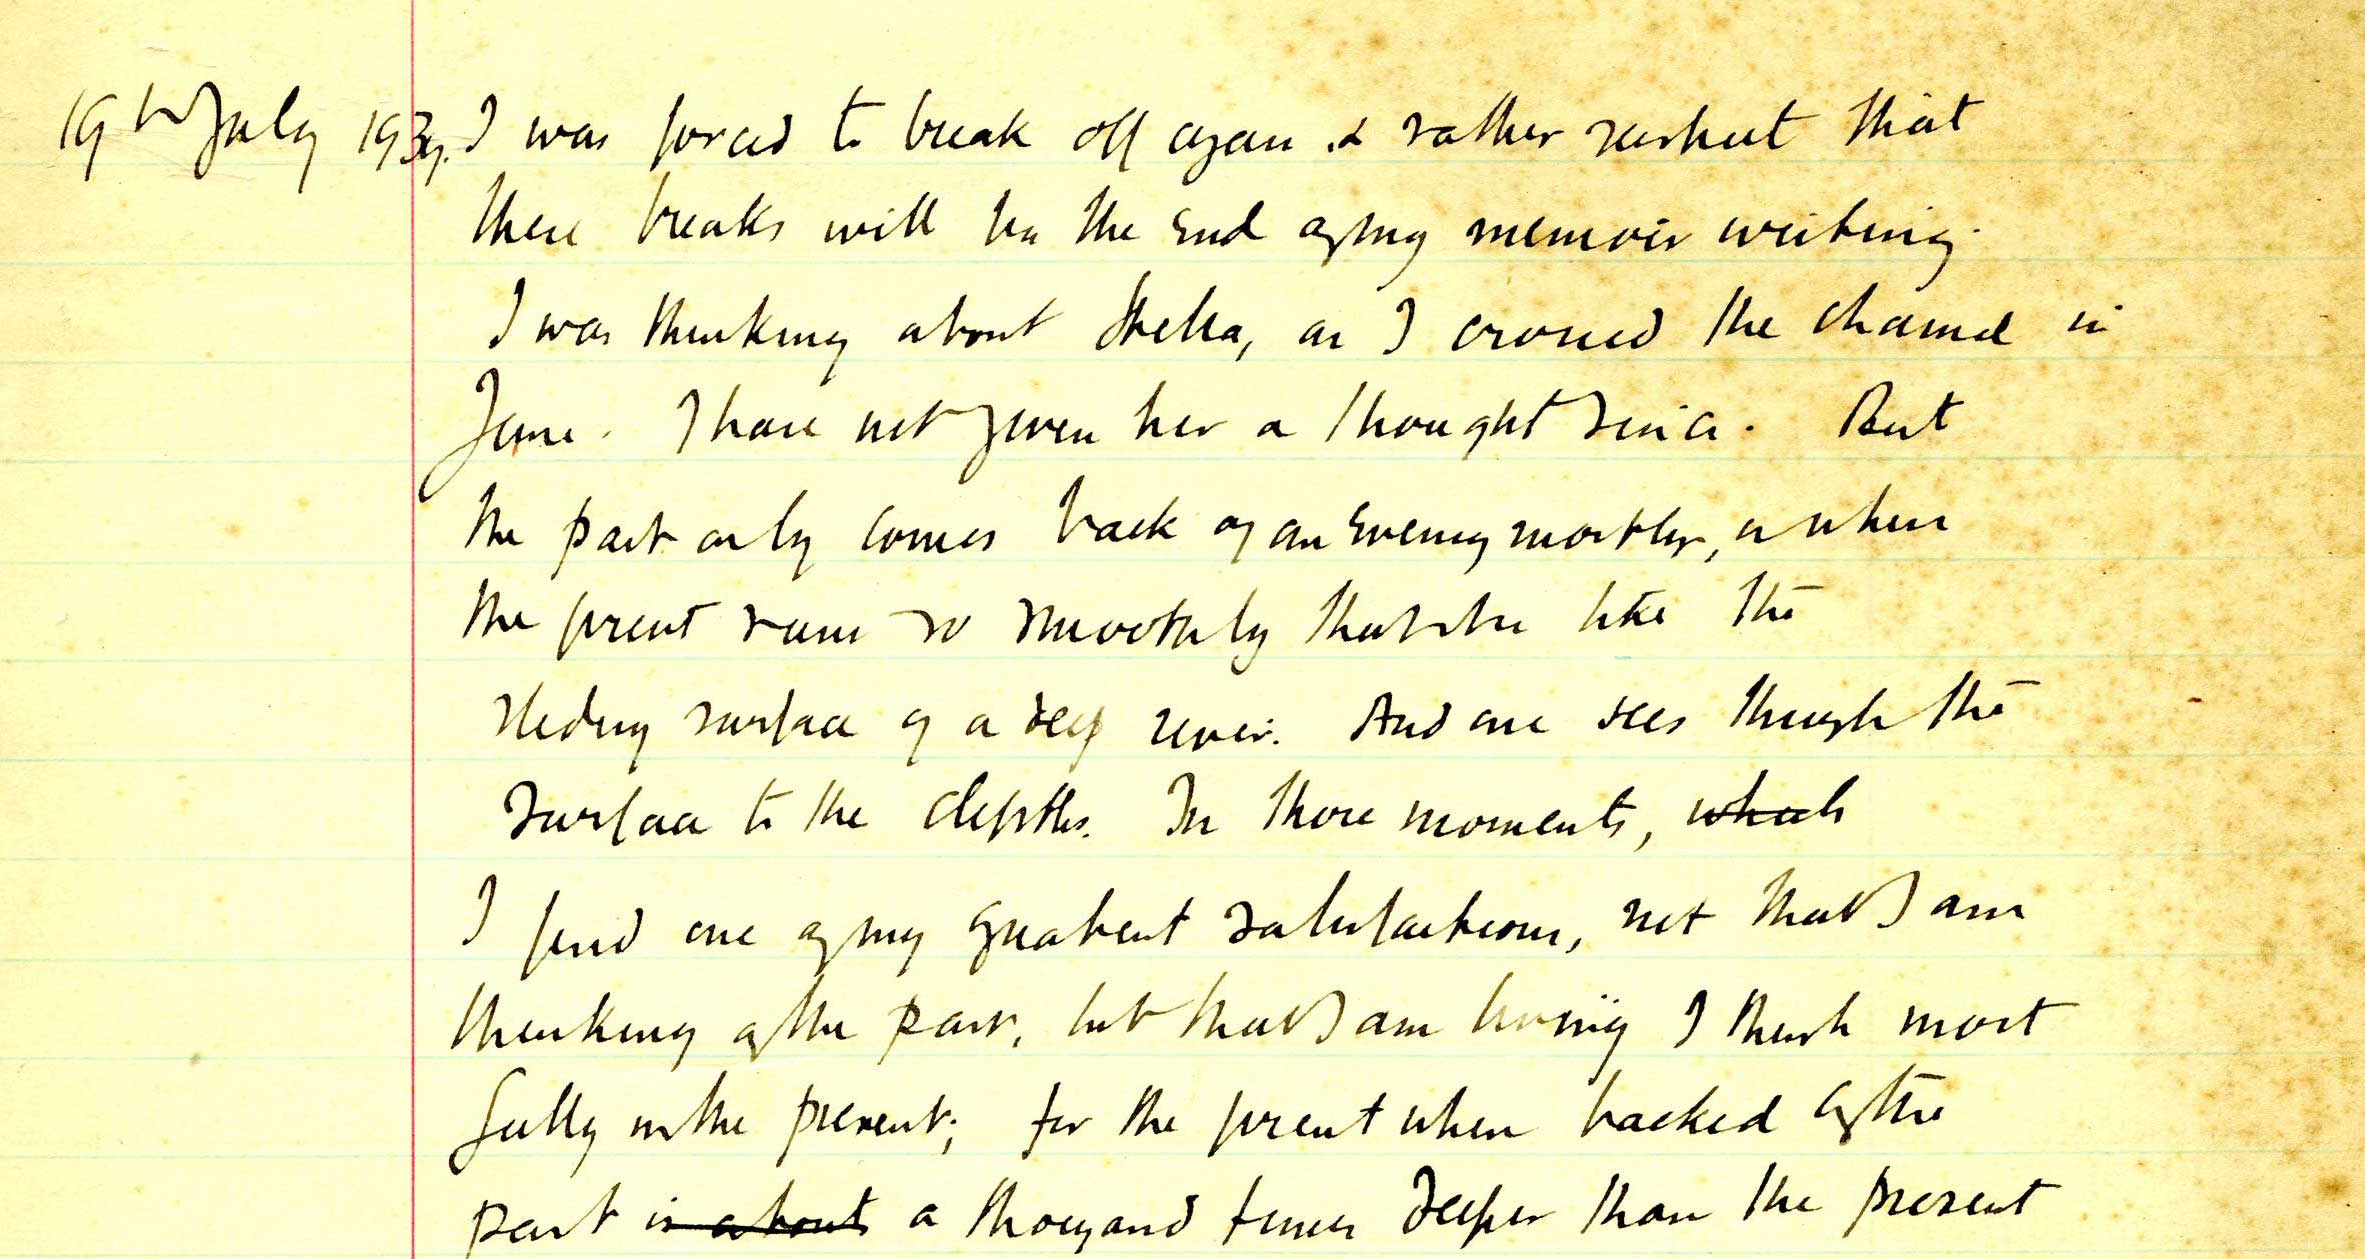 19th July 1939. I was forced to break off again & rather suspect that
these breaks will be the end of my memoir writing.
I was thinking about Stella, as I crossed the channel in
June. I have not given her a thought since. But
the past only comes back of an evening mostly, or when
the present runs so smoothly that it is like the
sliding surface of a deep river. And one sees through the
surface to the depths. In those moments, which
I find one of my greatest satisfactions, not that I am
thinking of the past, but that I am living I think most
fully in the present; for the present when backed by the
past is about a thousand times deeper than the present